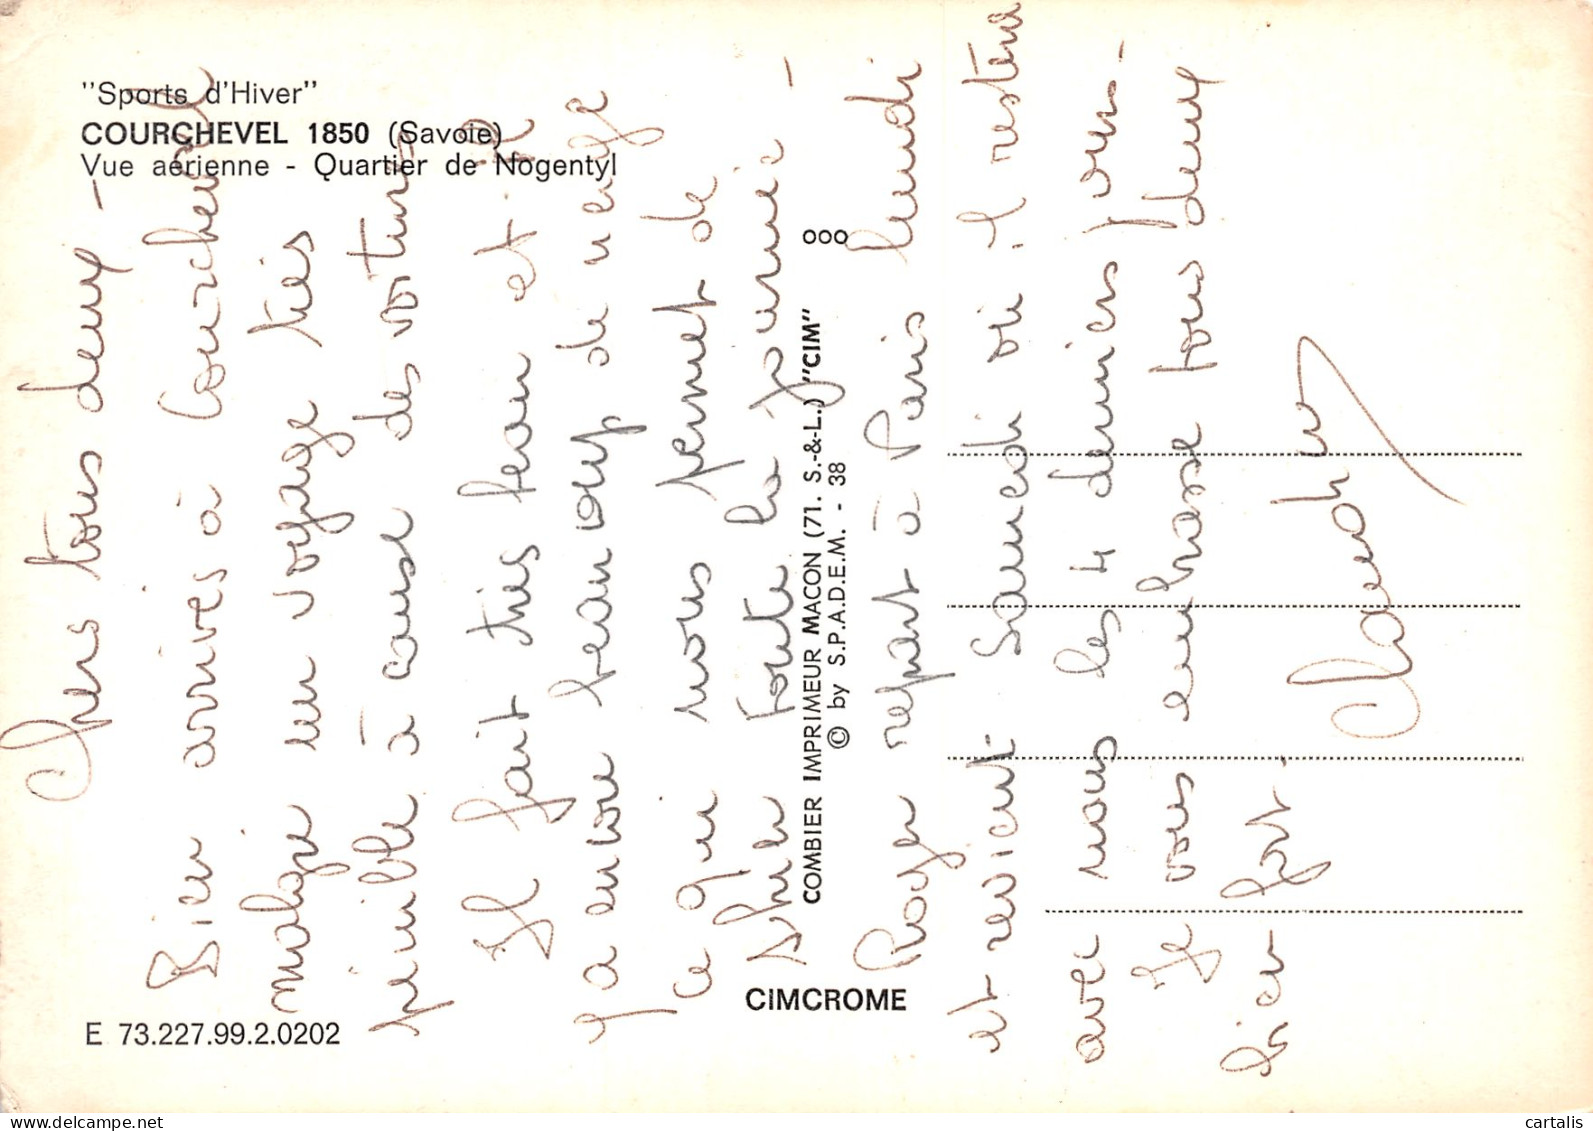 "Sports d'Hiver"
COURCHEVEL 1850 (Savoie)
Vue aérienne - Quartier de Nogentyl
Chers tous deux -
Bien arrivés à Courchevel
malgré un voyage très
pénible à cause des voitures
Il fait très beau et il
y a encore beaucoup de neige
ce qui nous permet de
skier toute la journée -
Roger repart à Paris lundi
et revient Samedi où il restera
avec nous les 4 derniers jours -
Je vous embrasse tous deux
bien fort.
COMBIER IMPRIMEUR MACON (71. S.-&-L.) "CIM"
© by S.P.A.D.E.M. - 38
ooo
CIMCROME
E 73.227.99.2.0202
cartalis